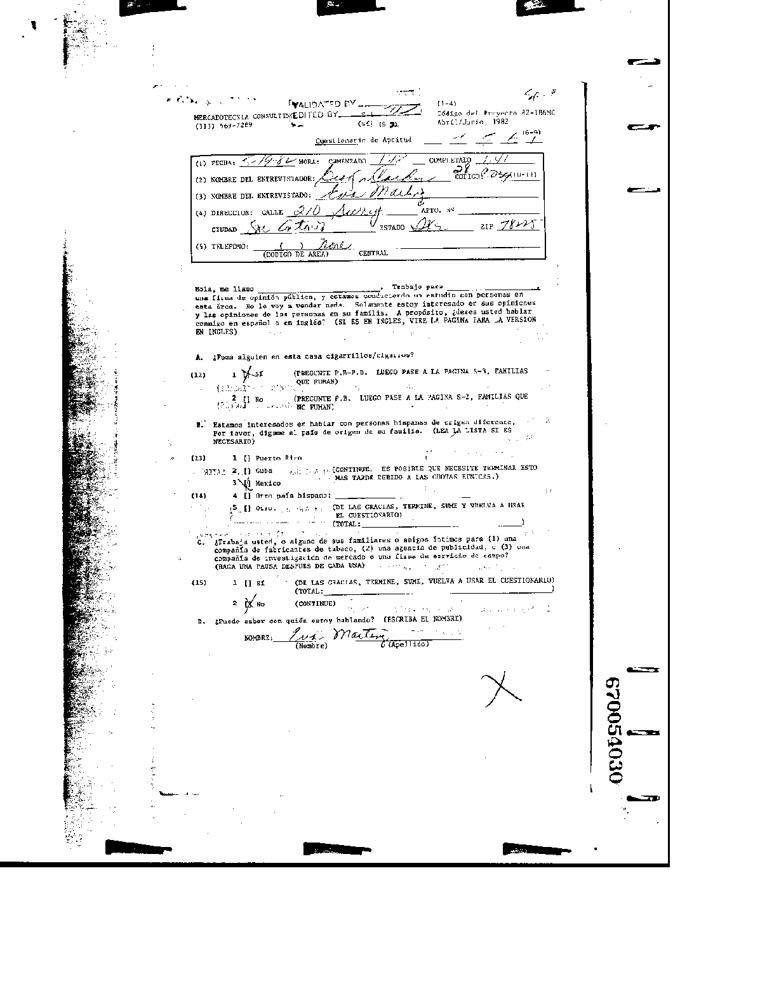 VALIDATED BY
(1-4)
MERCADOTECNIA CONSULTING EDITED BY
Código del Proyecto 82-186MC
(513) 569-7289
Abril/Junio, 1982
Cuestionario de Aptitud
(6-9)
(1) FECHA: 5-19-82 HORA: COMENZADO COMPLETADO 1:41
(2) NOMBRE DEL ENTREVISTADOR: CODIGO (10-11)
(3) NOMBRE DEL ENTREVISTADO: Eva
(4) DIRECCION: CALLE 210 APTO. Nº
CIUDAD San Antonio ESTADO ZIP 78228
(5) TELEFONO: ( ) None
(CODIGO DE AREA) CENTRAL
Hola, me llamo , Trabajo para ,
una firma de opinión pública, y estamos conduciendo un estudio con personas en
esta área. No le voy a vender nada. Solamente estoy interesado en sus opiniones
y las opiniones de las personas en su familia. A propósito, ¿desea usted hablar
conmigo en español o en inglés? (SI ES EN INGLES, VIRE LA PAGINA PARA LA VERSION
EN INGLES)
A. ¿Fuma alguien en esta casa cigarrillos/cigarros?
(12) 1 [] Sí (PREGUNTE P.B-P.D. LUEGO PASE A LA PAGINA S-3, FAMILIAS
QUE FUMAN)
2 [] No (PREGUNTE P.B. LUEGO PASE A LA PAGINA S-2, FAMILIAS QUE
NO FUMAN)
B. Estamos interesados en hablar con personas hispanas de origen diferente.
Por favor, dígame el país de origen de su familia. (LEA LA LISTA SI ES
NECESARIO)
(13) 1 [] Puerto Rico
2 [] Cuba (CONTINUE. ES POSIBLE QUE NECESITE TERMINAR ESTO
MAS TARDE DEBIDO A LAS CUOTAS ETNICAS.)
3 [] Mexico
(14) 4 [] Otro país hispano:
5 [] Otro. (DE LAS GRACIAS, TERMINE, SUME Y VUELVA A USAR
EL CUESTIONARIO)
(TOTAL: )
C. ¿Trabaja usted, o alguno de sus familiares o amigos íntimos para (1) una
compañía de fabricantes de tabaco, (2) una agencia de publicidad, o (3) una
compañía de investigación de mercado o una firma de servicio de campo?
(HAGA UNA PAUSA DESPUES DE CADA UNA)
(15) 1 [] Sí (DE LAS GRACIAS, TERMINE, SUME, VUELVA A USAR EL CUESTIONARIO)
(TOTAL: )
2 [X] No (CONTINUE)
D. ¿Puedo saber con quién estoy hablando? (ESCRIBA EL NOMBRE)
NOMBRE: Eva
(Nombre) (Apellido)
670054030